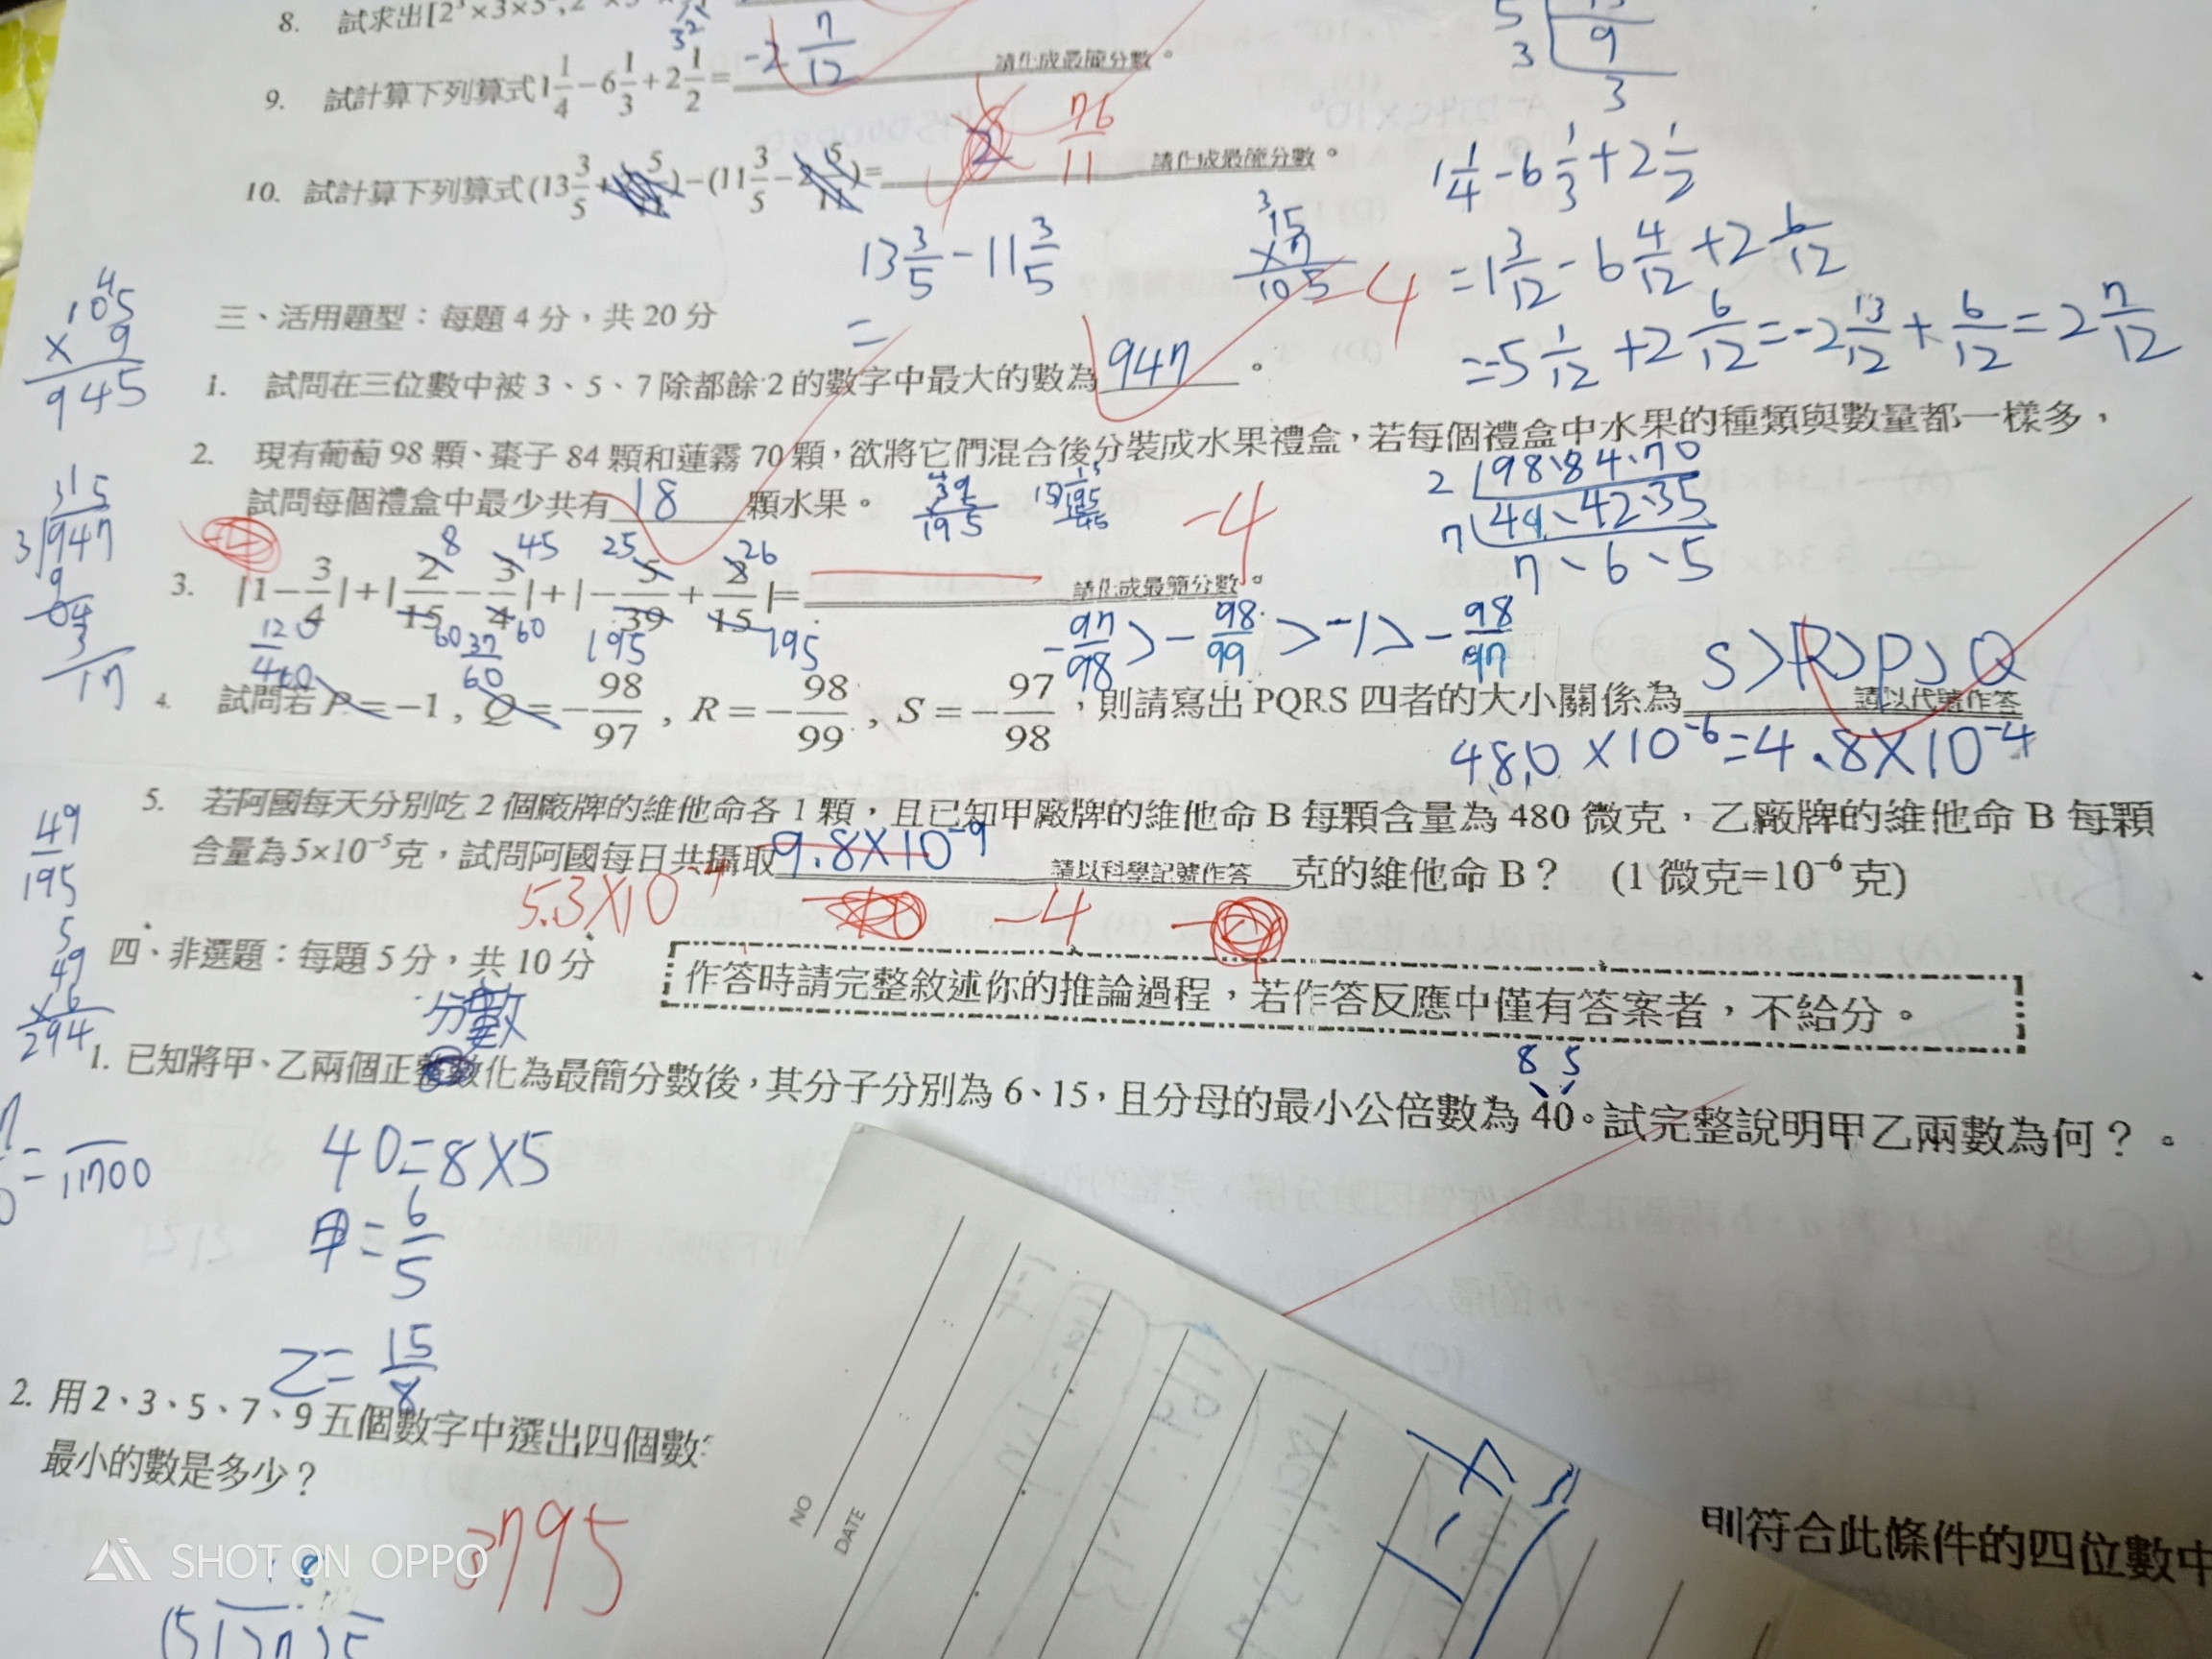 8. 試求出[2³×3×5
9. 試計算下列算式1 1/4 − 6 1/3 + 2 1/2 = -2 7/12 請化成最簡分數。
10. 試計算下列算式(13 3/5 + 5 )−(11 3/5 − 5/11)= 2 76/11 請化成最簡分數。
5 3 9 3
1 1/4 - 6 1/3 + 2 1/2
= 1 3/12 - 6 4/12 + 2 6/12
= -5 1/12 + 2 6/12 = -2 13/12 + 6/12 = 2 7/12
13 3/5 - 11 3/5
=
15 × 7 105 -4
105 × 9 945
三、活用題型：每題 4 分，共 20 分
1. 試問在三位數中被 3、5、7 除都餘 2 的數字中最大的數為 947 。
2. 現有葡萄 98 顆、棗子 84 顆和蓮霧 70 顆，欲將它們混合後分裝成水果禮盒，若每個禮盒中水果的種類與數量都一樣多，
試問每個禮盒中最少共有 18 顆水果。
2 98、84、70
7 49、42、35
7、6、5
315
3 947
17
39 195 -4
8 45 25 26
3. |1−3/4|+|2/15−3/4|+|−5/39+2/15|= 請化成最簡分數。
60 37/60 60 195 195
-97/98 > -98/99 > -1 > -98/97
4. 試問若 P = −1，Q = −98/97，R = −98/99，S = −97/98，則請寫出 PQRS 四者的大小關係為 S>R>P>Q 請以代號作答
480 × 10⁻⁶ = 4.8 × 10⁻⁴
5. 若阿國每天分別吃 2 個廠牌的維他命各 1 顆，且已知甲廠牌的維他命 B 每顆含量為 480 微克，乙廠牌的維他命 B 每顆
含量為 5×10⁻⁵ 克，試問阿國每日共攝取 9.8×10⁻⁹ 請以科學記號作答 克的維他命 B？ (1 微克=10⁻⁶ 克)
5.3×10⁻⁴ -4
49 195
49 × 6 294
四、非選題：每題 5 分，共 10 分
作答時請完整敘述你的推論過程，若作答反應中僅有答案者，不給分。
分數
8 5
1. 已知將甲、乙兩個正整數化為最簡分數後，其分子分別為 6、15，且分母的最小公倍數為 40。試完整說明甲乙兩數為何？。
= 11700
40=8×5
甲= 6/5
乙= 15/8
2. 用 2、3、5、7、9 五個數字中選出四個數
則符合此條件的四位數中
最小的數是多少？
3795
NO
DATE
SHOT ON OPPO